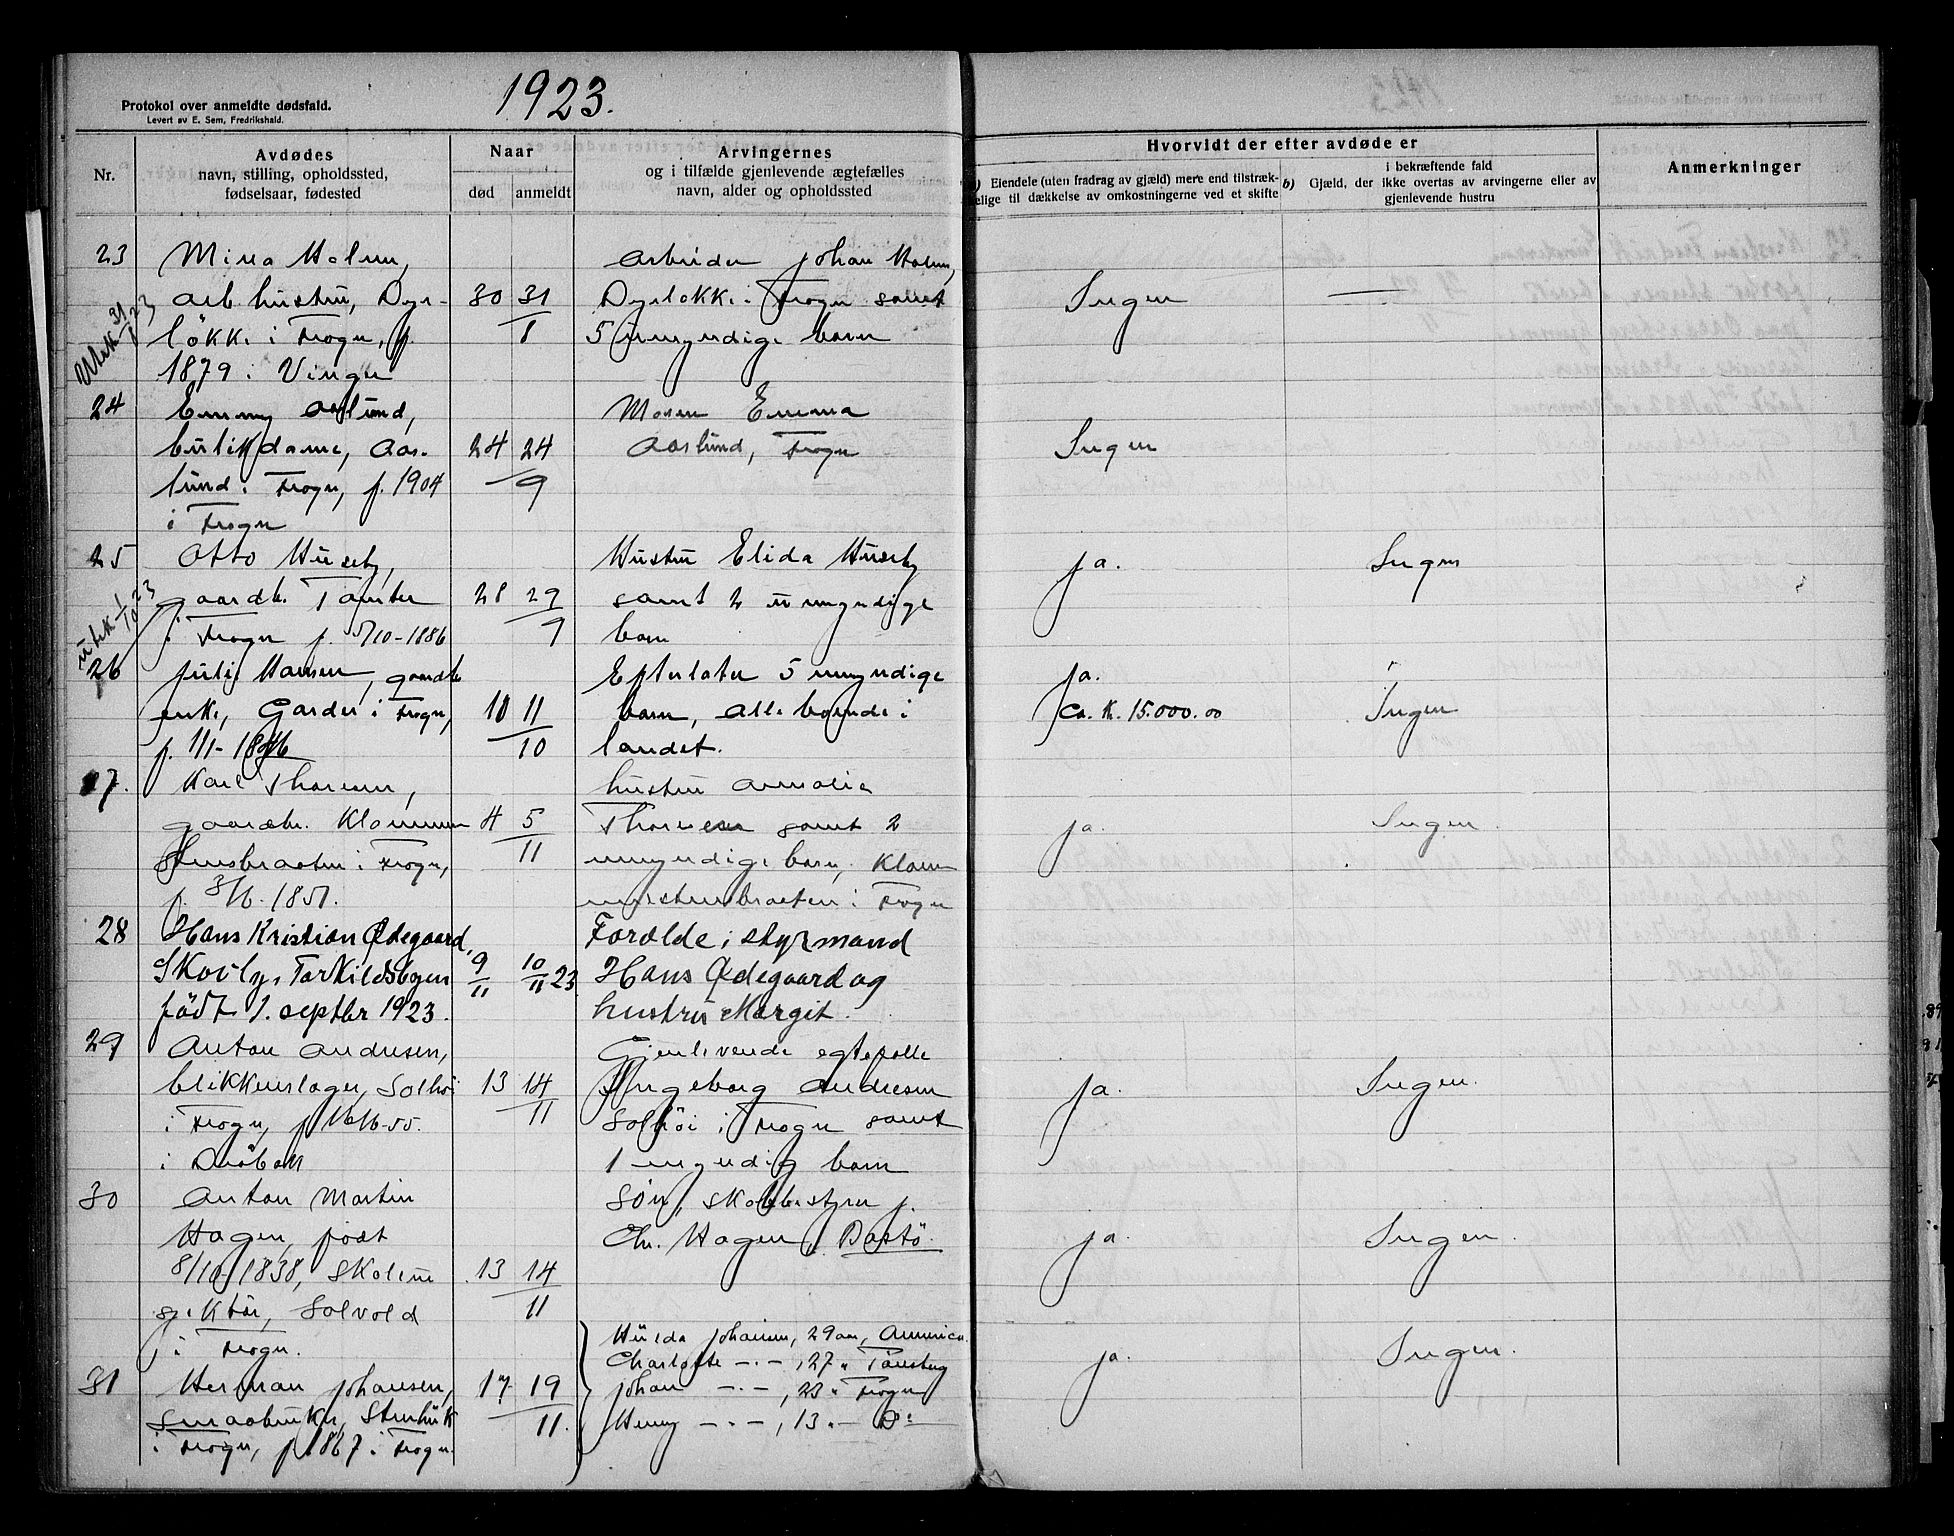 1923.
Protokol over anmeldte dødsfald.
Levert av E. Sem, Fredrikshald.
Nr.
Avdødes
navn, stilling, opholdssted,
fødselsaar, fødested
Naar
død
anmeldt
Arvingernes
og i tilfælde gjenlevende ægtefælles
navn, alder og opholdssted
Hvorvidt der efter avdøde er
a) Eiendele (uten fradrag av gjæld) mere end tilstræk-
kelige til dækkelse av omkostningerne ved et skifte
b) Gjæld, der i bekræftende fald
ikke overtas av arvingerne eller av
gjenlevende hustru
Anmerkninger
23
Utsk. 31/8 23
Mina Holm,
arb. hustru, Dyr-
løkke i Frogn, f.
1879 i Vinger
30
31/8
Arbeider Johan Holm,
Dyrløkke i Frogn samt
5 umyndige barn
Ingen
24
Emmy Aaslund,
butikdame, Aas-
lund i Frogn, f. 1904
i Frogn
24
24/9
Moren Emma
Aaslund, Frogn
Ingen
25
utsk. 1/10 23
Otto Huseby,
gaardbr. Tomter
i Frogn f. 5/10-1886
28
29/9
Hustru Elida Huseby
samt 2 umyndige
barn
ja.
Ingen
26
Juli Hansen, gaardbr.
enke, Garder i Frogn,
f. 1/1-1846
10
11/10
Efterlater 5 myndige
barn, alle boende i
landet.
ja.
ca. K. 15.000.00
Ingen
27.
Karl Thoresen,
gaardbr. Klommen
stensbraaten i Frogn,
f. 3/6-1851.
4
5/11
hustru Amalie
Thoresen samt 2
umyndige barn, Klom
merstenbraaten i Frogn
ja.
Ingen.
28
Hans Kristian Ødegaard,
Skovly, Torkildsbyen
født 1. septbr 1923.
9/11
10/11 23
Forælde; styrmand
Hans Ødegaard og
hustru Margit.
29
Anton Andresen,
blikkenslager, Solhøi
i Frogn, f. 16/6-55.
i Drøbak
13
14/11
Gjenlevende egtefelle
Ingeborg Andresen
Solhøi i Frogn samt
1 myndig barn
ja.
Ingen.
30
Anton Martin
Hagen, født
8/10-1838, Skolein
spektør, Solvold
i Frogn.
13
14/11
Søn, skolebestyrer f.
Chr. Hagen, Bastø.
ja.
Ingen.
31
Herman Johansen,
Smaabruker, Stenhuk
i Frogn, f. 1867 i Frogn.
17
19/11.
Hulda Johansen, 29 aar, Amerika.
Charlotte -„- , 27 „ Tønsberg
Johan -„- , 23 „ Frogn
Henny -„- , 13 „- Do
ja.
Ingen.